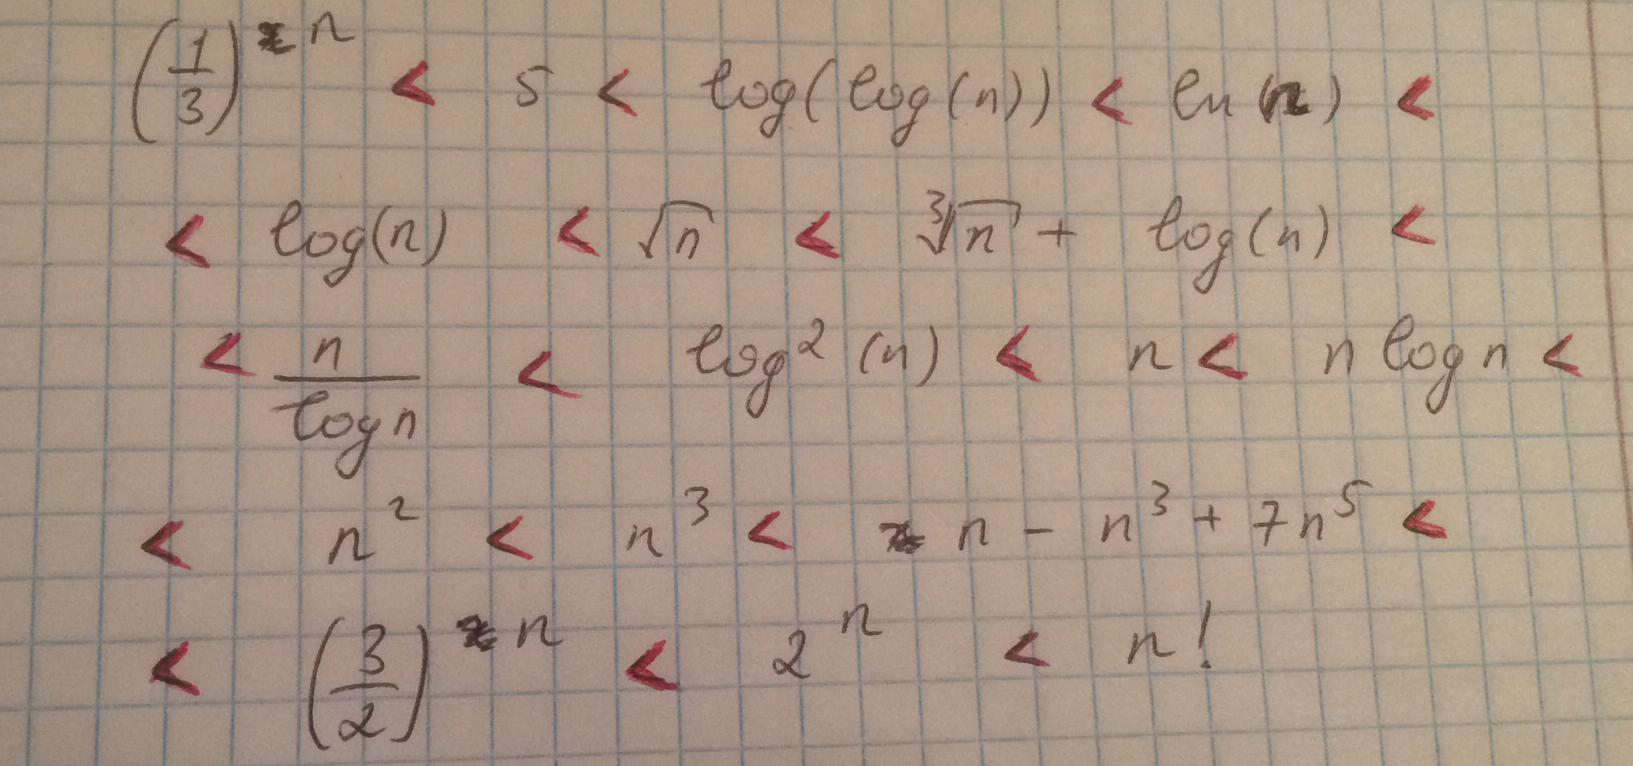 (1/3)^n < 5 < log(log(n)) < ln(n) <
< log(n) < √n < ∛n + log(n) <
< n/log n < log²(n) < n < n log n <
< n² < n³ < n - n³ + 7n⁵ <
< (3/2)^n < 2^n < n!